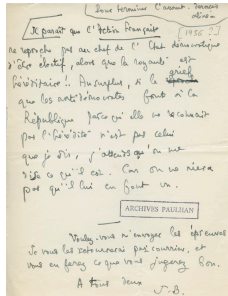 Pour terminer l'avant-dernier
alinéa
[1936 ?]
Il paraît que l'Action Française
ne reproche pas au chef de l'Etat démocratique
d'être électif, alors que la royauté est
héréditaire !! Au surplus, si le grief
que les antidémocrates font à la
République parce qu'elle ne reconnaît
pas l'hérédité n'est pas celui
que je dis, j'attends qu'on me
dise ce qu'il est. Car on ne niera
pas qu'il lui en font un.
ARCHIVES PAULHAN
Voulez-vous m'envoyer les épreuves
Je vous les retournerai par courrier, et
vous en ferez ce que vous jugerez bon.
A tous deux
J. B.